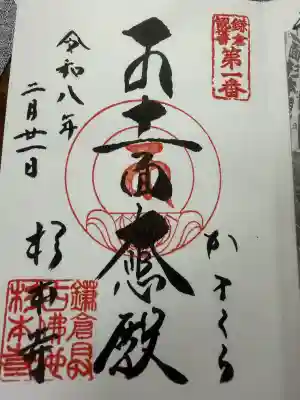 第一番
かまくら
十一面
大悲殿
令和八年
二月廿一日
杉本寺
鎌倉最
古佛地
杉本寺